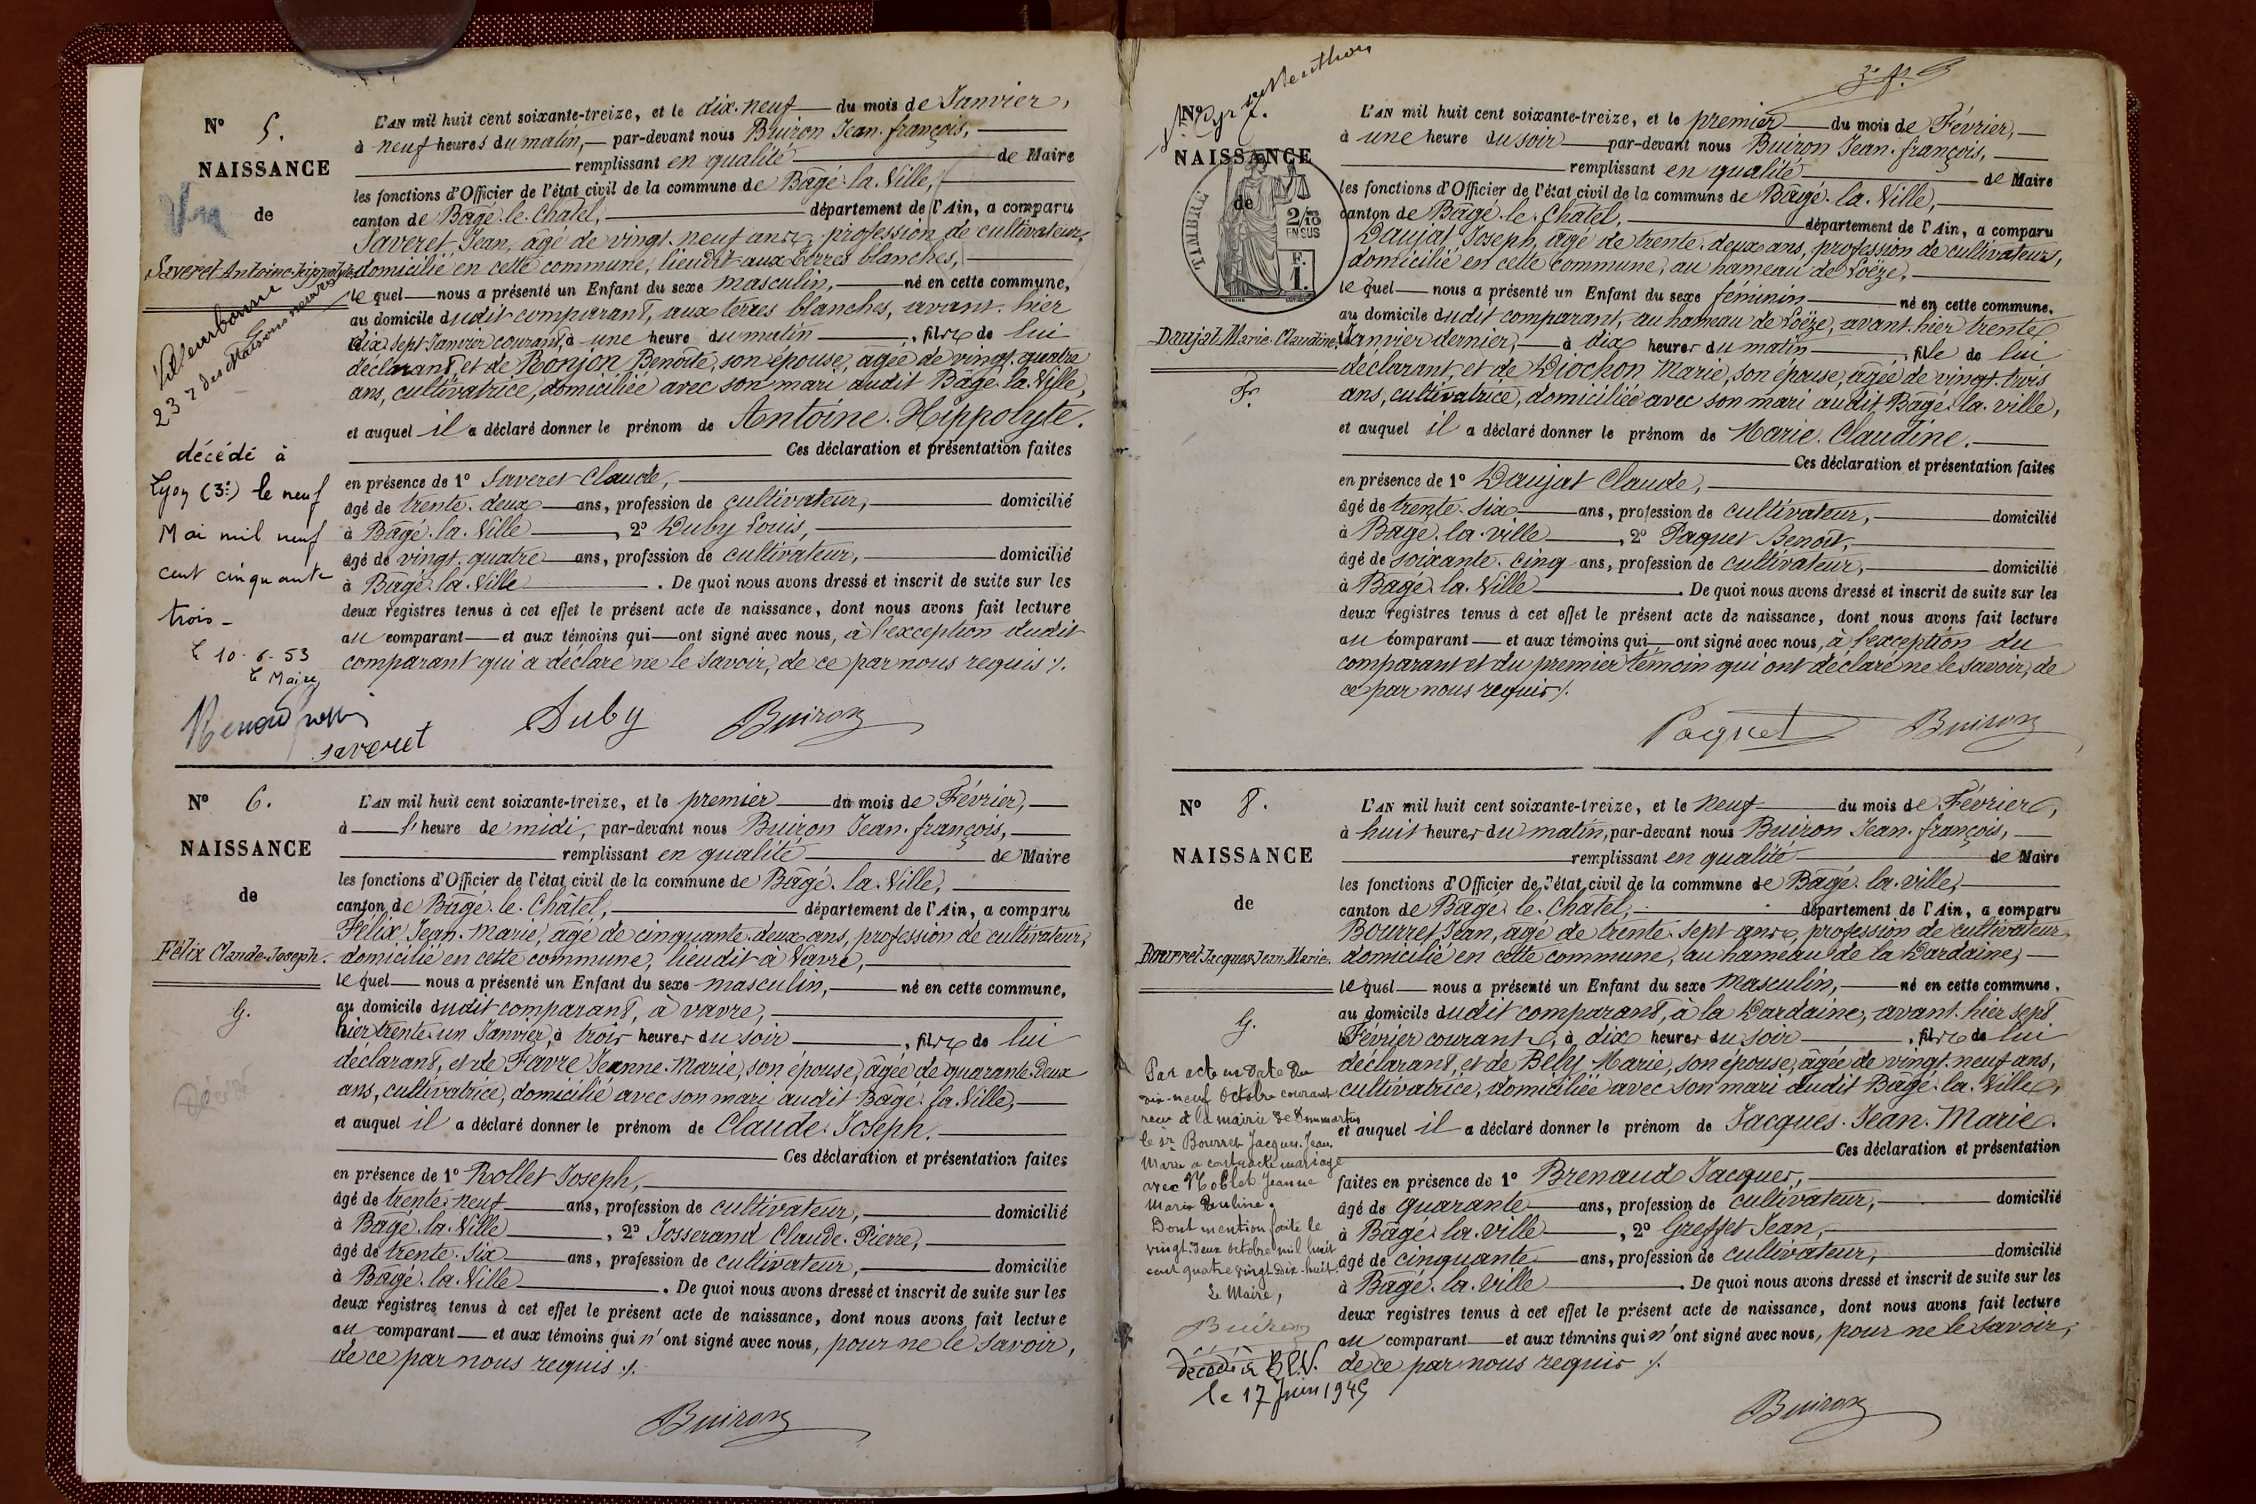 N° 5.
NAISSANCE
de
Saveret Antoine-Hippolyte
Villeurbanne
23 r des Maisons neuves
décédé à
Lyon (3e) le neuf
Mai mil neuf
cent cinquante
trois -
L 10-6-53
L Maire
L'AN mil huit cent soixante-treize, et le dix-neuf du mois de Janvier,
à neuf heures du matin, par-devant nous Buiron Jean-françois,
remplissant en qualité de Maire
les fonctions d'Officier de l'état civil de la commune de Bâgé-la-Ville,
canton de Bâgé-le-Châtel, département de l'Ain, a comparu
Saveret Jean, âgé de vingt-neuf ans, profession de cultivateur,
domicilié en cette commune, lieudit aux terres blanches,
lequel nous a présenté un Enfant du sexe masculin, né en cette commune,
au domicile dudit comparant, aux terres blanches, avant-hier
dix-sept Janvier courant, à une heure du matin, fils de lui
déclarant, et de Bonjon Benoîte, son épouse, âgée de vingt-quatre
ans, cultivatrice, domiciliée avec son mari audit Bâgé-la-Ville,
et auquel il a déclaré donner le prénom de Antoine-Hippolyte.
Ces déclaration et présentation faites
en présence de 1° Saveret Claude,
âgé de trente-deux ans, profession de cultivateur, domicilié
à Bâgé-la-Ville, 2° Duby Louis,
âgé de vingt-quatre ans, profession de cultivateur, domicilié
à Bâgé-la-Ville. De quoi nous avons dressé et inscrit de suite sur les
deux registres tenus à cet effet le présent acte de naissance, dont nous avons fait lecture
au comparant et aux témoins qui ont signé avec nous, à l'exception dudit
comparant qui a déclaré ne le savoir, de ce par nous requis /.
saveret Duby Buiron
N° 6.
NAISSANCE
de
Félix Claude-Joseph.
G.
Décédé
L'AN mil huit cent soixante-treize, et le premier du mois de Février,
à l'heure de midi, par-devant nous Buiron Jean-françois,
remplissant en qualité de Maire
les fonctions d'Officier de l'état civil de la commune de Bâgé-la-Ville,
canton de Bâgé-le-Châtel, département de l'Ain, a comparu
Félix Jean-Marie, âgé de cinquante-deux ans, profession de cultivateur,
domicilié en cette commune, lieudit à Vavre,
lequel nous a présenté un Enfant du sexe masculin, né en cette commune,
au domicile dudit comparant, à vavre,
hier trente-un Janvier, à trois heures du soir, fils de lui
déclarant, et de Favre Jeanne-Marie, son épouse, âgée de quarante-deux
ans, cultivatrice, domicilié avec son mari audit Bâgé-la-Ville,
et auquel il a déclaré donner le prénom de Claude-Joseph.
Ces déclaration et présentation faites
en présence de 1° Rollet Joseph,
âgé de trente-neuf ans, profession de cultivateur, domicilié
à Bâgé-la-Ville, 2° Josserand Claude-Pierre,
âgé de trente-six ans, profession de cultivateur, domicilié
à Bâgé-la-Ville. De quoi nous avons dressé et inscrit de suite sur les
deux registres tenus à cet effet le présent acte de naissance, dont nous avons fait lecture
au comparant et aux témoins qui n'ont signé avec nous, pour ne le savoir,
de ce par nous requis /.
Buiron
N° 7.
NAISSANCE
de
TIMBRE
2/10 EN SUS
F. 1.
Daujat Marie-Claudine,
F.
L'AN mil huit cent soixante-treize, et le premier du mois de Février,
à une heure du soir par-devant nous Buiron Jean-françois,
remplissant en qualité de Maire
les fonctions d'Officier de l'état civil de la commune de Bâgé-la-Ville,
canton de Bâgé-le-Châtel, département de l'Ain, a comparu
Daujat Joseph, âgé de trente-deux ans, profession de cultivateur,
domicilié en cette commune, au hameau de Loëze,
lequel nous a présenté un Enfant du sexe féminin né en cette commune,
au domicile dudit comparant, au hameau de Loëze, avant-hier trente
Janvier dernier, à dix heures du matin, fille de lui
déclarant, et de Diochon Marie, son épouse, âgée de vingt-trois
ans, cultivatrice, domiciliée avec son mari audit Bâgé-la-ville,
et auquel il a déclaré donner le prénom de Marie-Claudine.
Ces déclaration et présentation faites
en présence de 1° Daujat Claude,
âgé de trente-six ans, profession de cultivateur, domicilié
à Bagé-la-ville, 2° Paquet Benoît,
âgé de soixante-cinq ans, profession de cultivateur, domicilié
à Bagé-la-Ville. De quoi nous avons dressé et inscrit de suite sur les
deux registres tenus à cet effet le présent acte de naissance, dont nous avons fait lecture
au comparant et aux témoins qui ont signé avec nous, à l'exception du
comparant et du premier témoin qui ont déclaré ne le savoir, de
ce par nous requis /.
Paquet Buiron
N° 8.
NAISSANCE
de
Bourret Jacques-Jean-Marie.
G.
Par acte en date du
dix-neuf octobre courant
reçu à la mairie de Dommartin
le Sr Bourret Jacques-Jean
Marie a contracté mariage
avec Noblet Jeanne
Marie Pauline.
Dont mention faite le
vingt-deux octobre mil huit
cent quatre vingt-dix-huit
Le Maire,
Buiron
décédé à B.L.V.
le 17 Juin 1945
L'AN mil huit cent soixante-treize, et le neuf du mois de Février,
à huit heures du matin, par-devant nous Buiron Jean-françois,
remplissant en qualité de Maire
les fonctions d'Officier de l'état civil de la commune de Bâgé-la-ville,
canton de Bâgé-le-Châtel, département de l'Ain, a comparu
Bourret Jean, âgé de trente-sept ans, profession de cultivateur
domicilié en cette commune, au hameau de la Dardaine,
lequel nous a présenté un Enfant du sexe masculin, né en cette commune,
au domicile dudit comparant, à la Dardaine, avant-hier sept
Février courant, à dix heures du soir, fils de lui
déclarant, et de Bely Marie, son épouse, âgée de vingt-neuf ans,
cultivatrice, domiciliée avec son mari audit Bâgé-la-Ville,
et auquel il a déclaré donner le prénom de Jacques-Jean-Marie.
Ces déclaration et présentation
faites en présence de 1° Brenaud Jacques,
âgé de quarante ans, profession de cultivateur, domicilié
à Bâgé-la-ville, 2° Greffet Jean,
âgé de cinquante ans, profession de cultivateur, domicilié
à Bâgé-la-ville. De quoi nous avons dressé et inscrit de suite sur les
deux registres tenus à cet effet le présent acte de naissance, dont nous avons fait lecture
au comparant et aux témoins qui n'ont signé avec nous, pour ne le savoir,
de ce par nous requis /.
Buiron